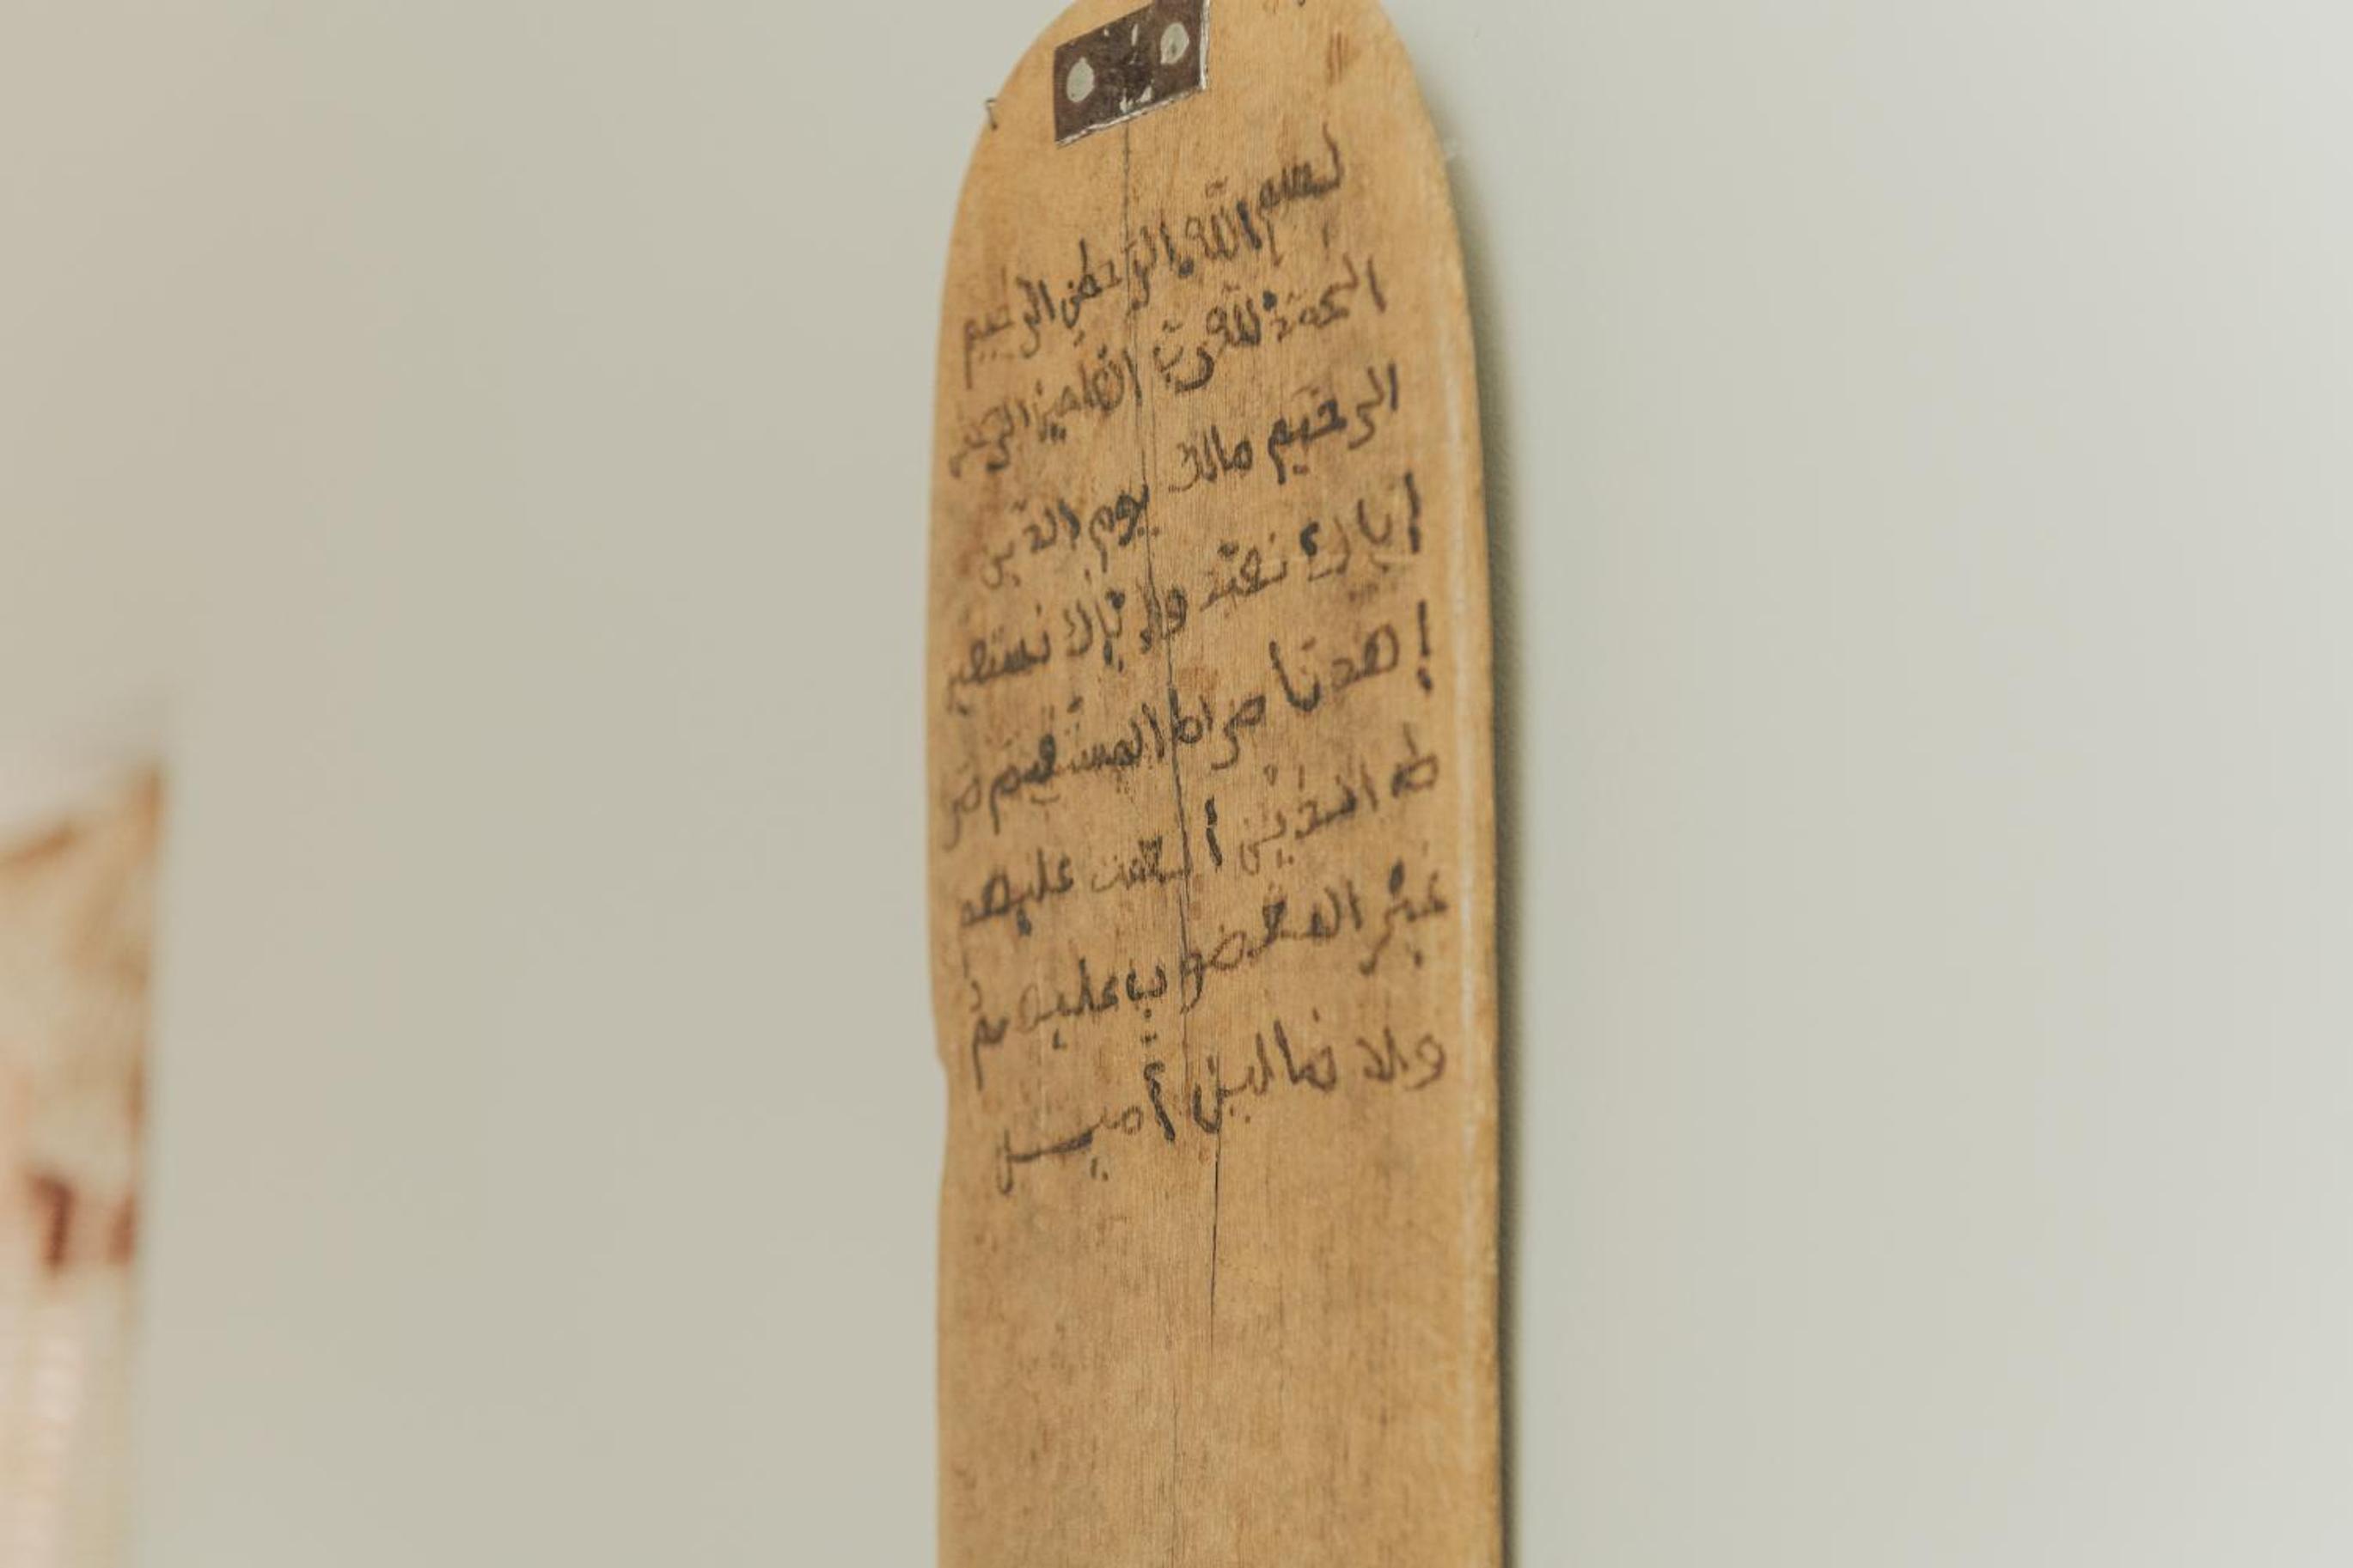 بسم الله الرحمن الرحيم
الحمد لله رب العلمين الرحمن
الرحيم مالك يوم الدين
إياك نعبد وإياك نستعين
إهدنا صراط المستقيم صرا
ط الذين أنعمت عليهم
غير المغضوب عليهم
ولا ضالين آميـن